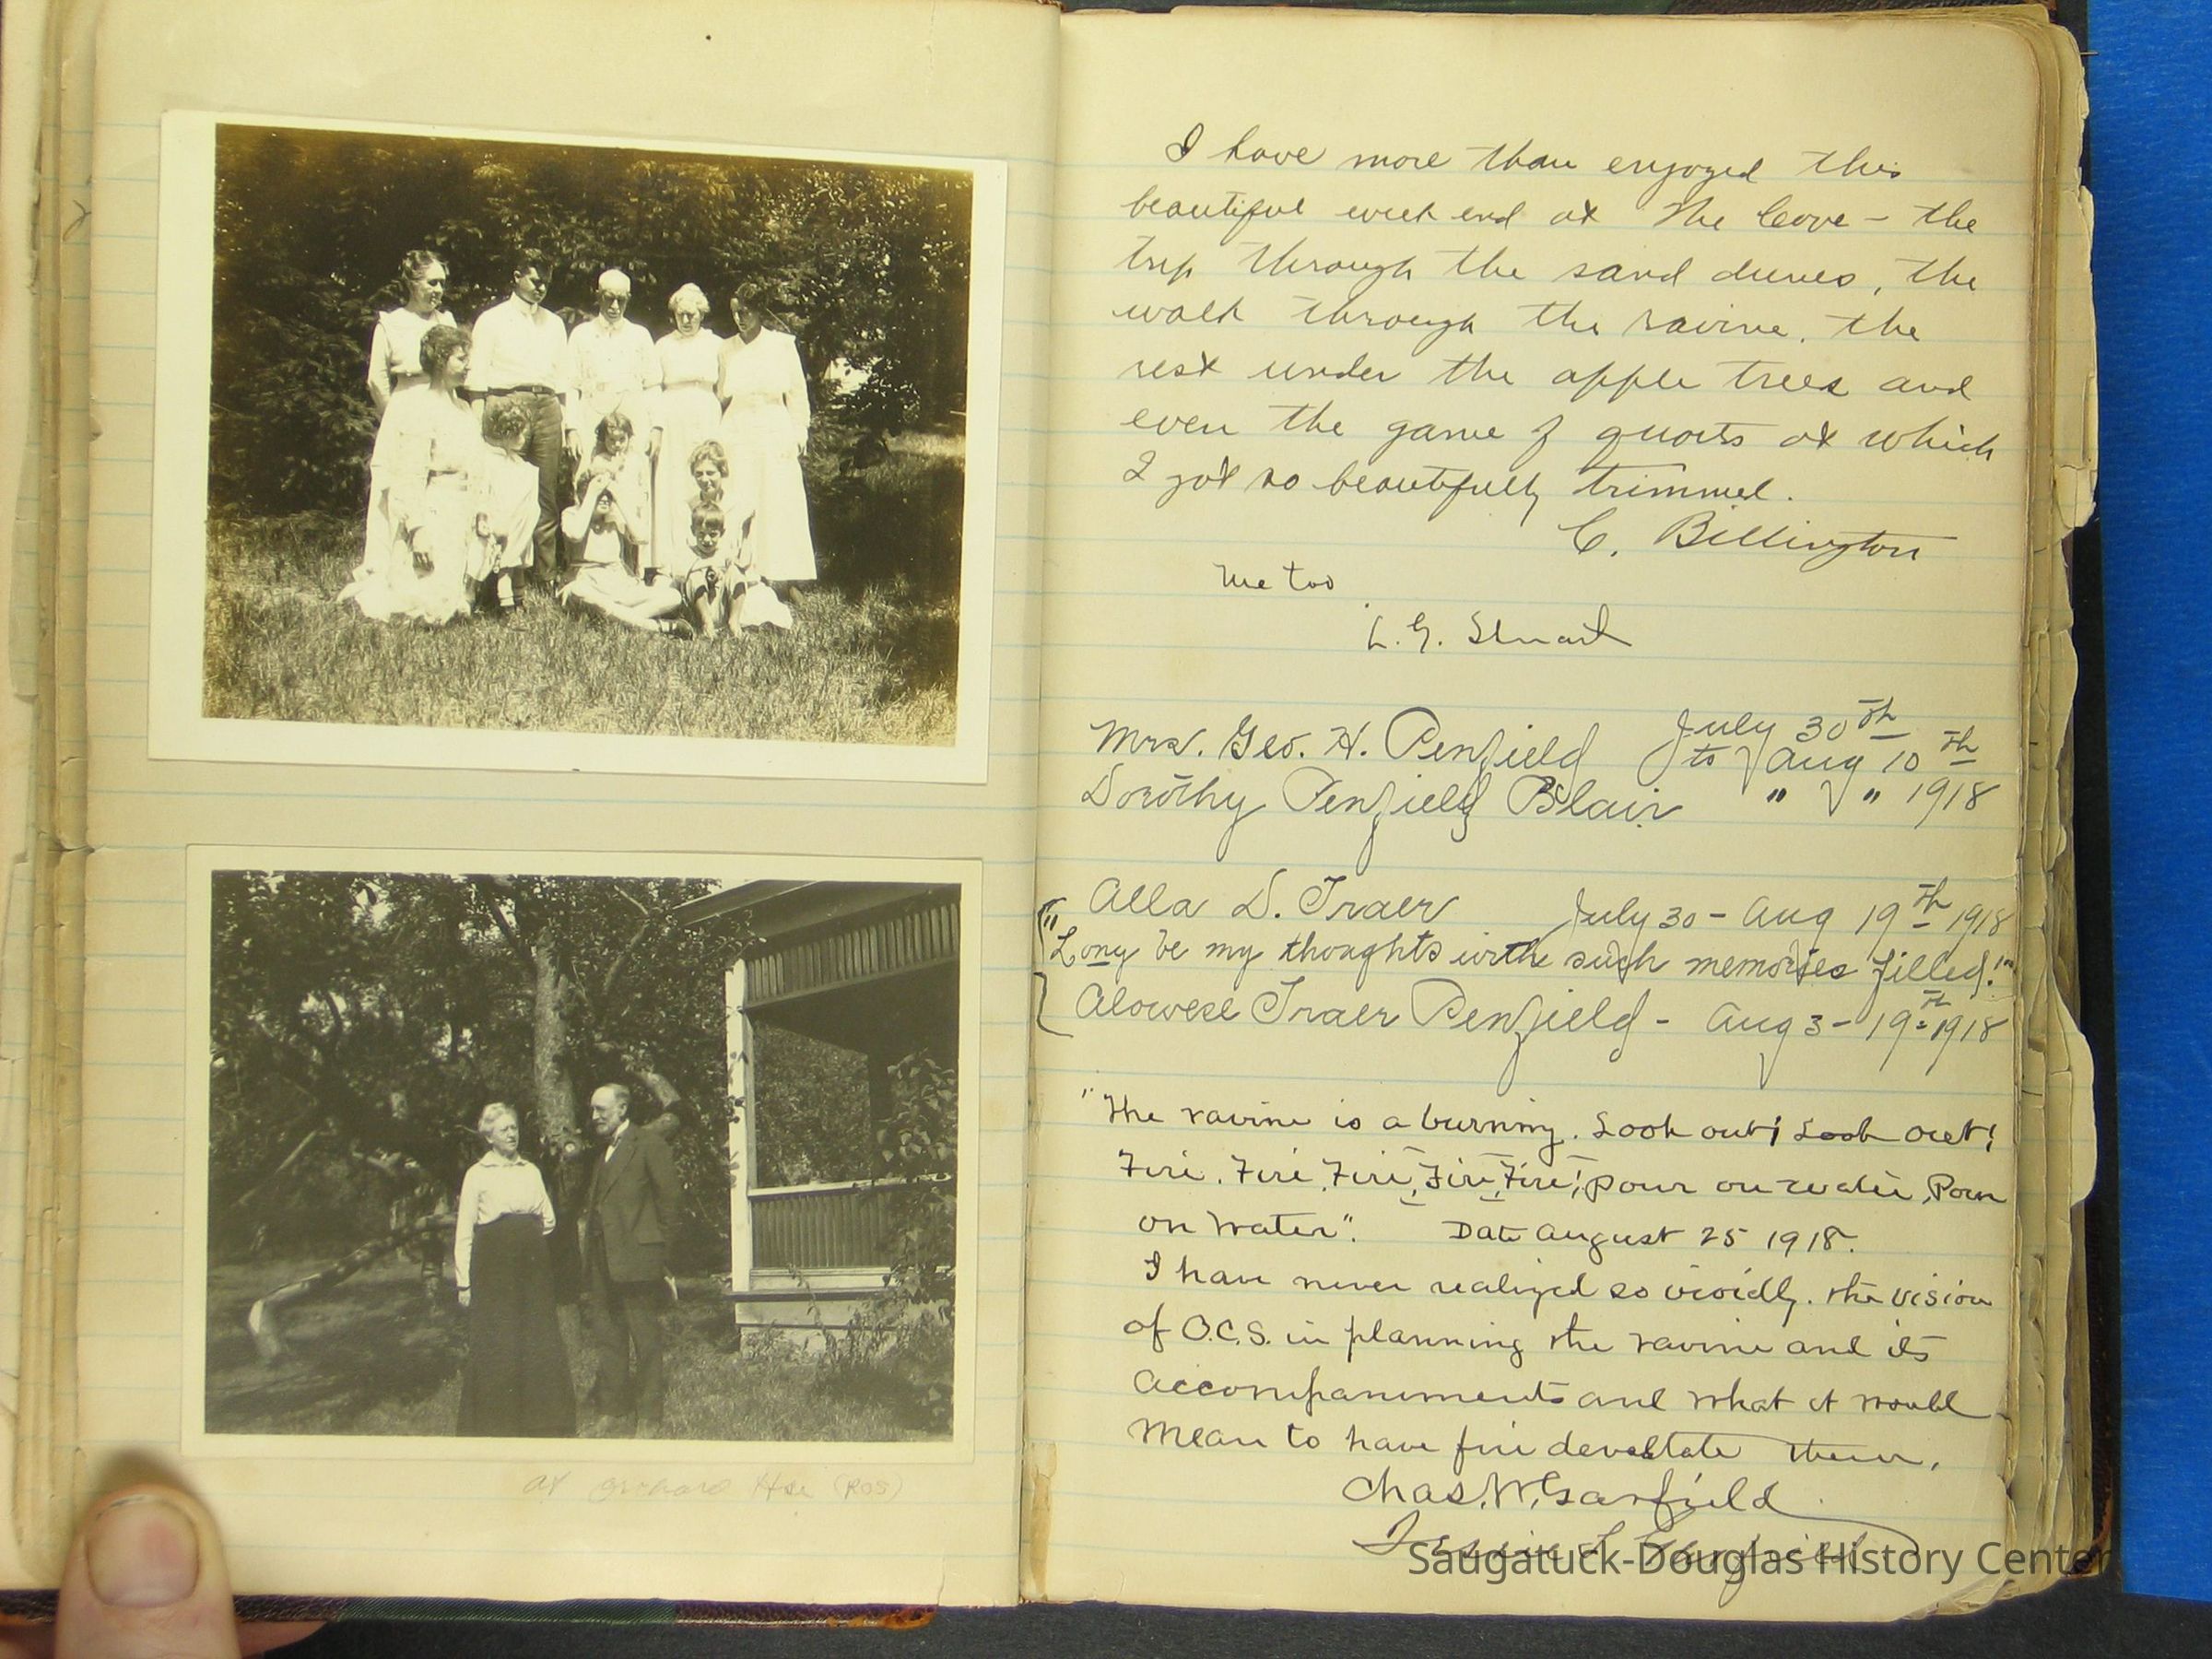 at orchard Hse (ROS)
I have more than enjoyed this
beautiful week end at The Cove – the
trip through the sand dunes, the
walk through the ravine, the
rest under the apple trees and
even the game of quoits at which
I got so beautifully trimmed.
C. Billington
Me too
L. G. Stuart
Mrs. Geo. H. Penfield July 30th
to Aug 10th
Dorothy Penfield Blair " " 1918
Alla D. Traer July 30 – Aug 19th 1918
"Long be my thoughts with such memories filled!"
Alowese Traer Penfield – Aug 3 – 19th 1918
"The ravine is a burning. Look out! Look out!
Fire. Fire, Fire, Fire, Fire! Pour on water, Pour
on water". Date August 25 1918.
I have never realized so vividly. the vision
of O.C.S. in planning the ravine and its
accompaniments and what it would
mean to have fire devastate them.
Chas. W. Garfield
Jessie Garfield
Saugatuck-Douglas History Center